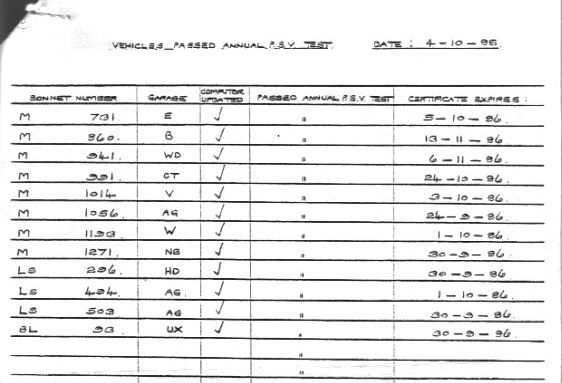 VEHICLES PASSED ANNUAL P.S.V. TEST. DATE : 4-10-86.
BONNET NUMBER GARAGE COMPUTOR UPDATED PASSED ANNUAL P.S.V. TEST CERTIFICATE EXPIRES :
M 731 E ✓ " 5-10-86.
M 860. B ✓ " 13-11-86.
M 941. WD ✓ " 6-11-86.
M 991. CT ✓ " 24-10-86.
M 1014 V ✓ " 3-10-86.
M 1056. AG ✓ " 24-9-86.
M 1193. W ✓ " 1-10-86.
M 1271. NB ✓ " 30-9-86.
LS 296. HD ✓ " 30-9-86.
LS 494. AG. ✓ " 1-10-86.
LS 503 AG ✓ " 30-9-86.
BL 93. UX ✓ " 30-9-86.
"
"